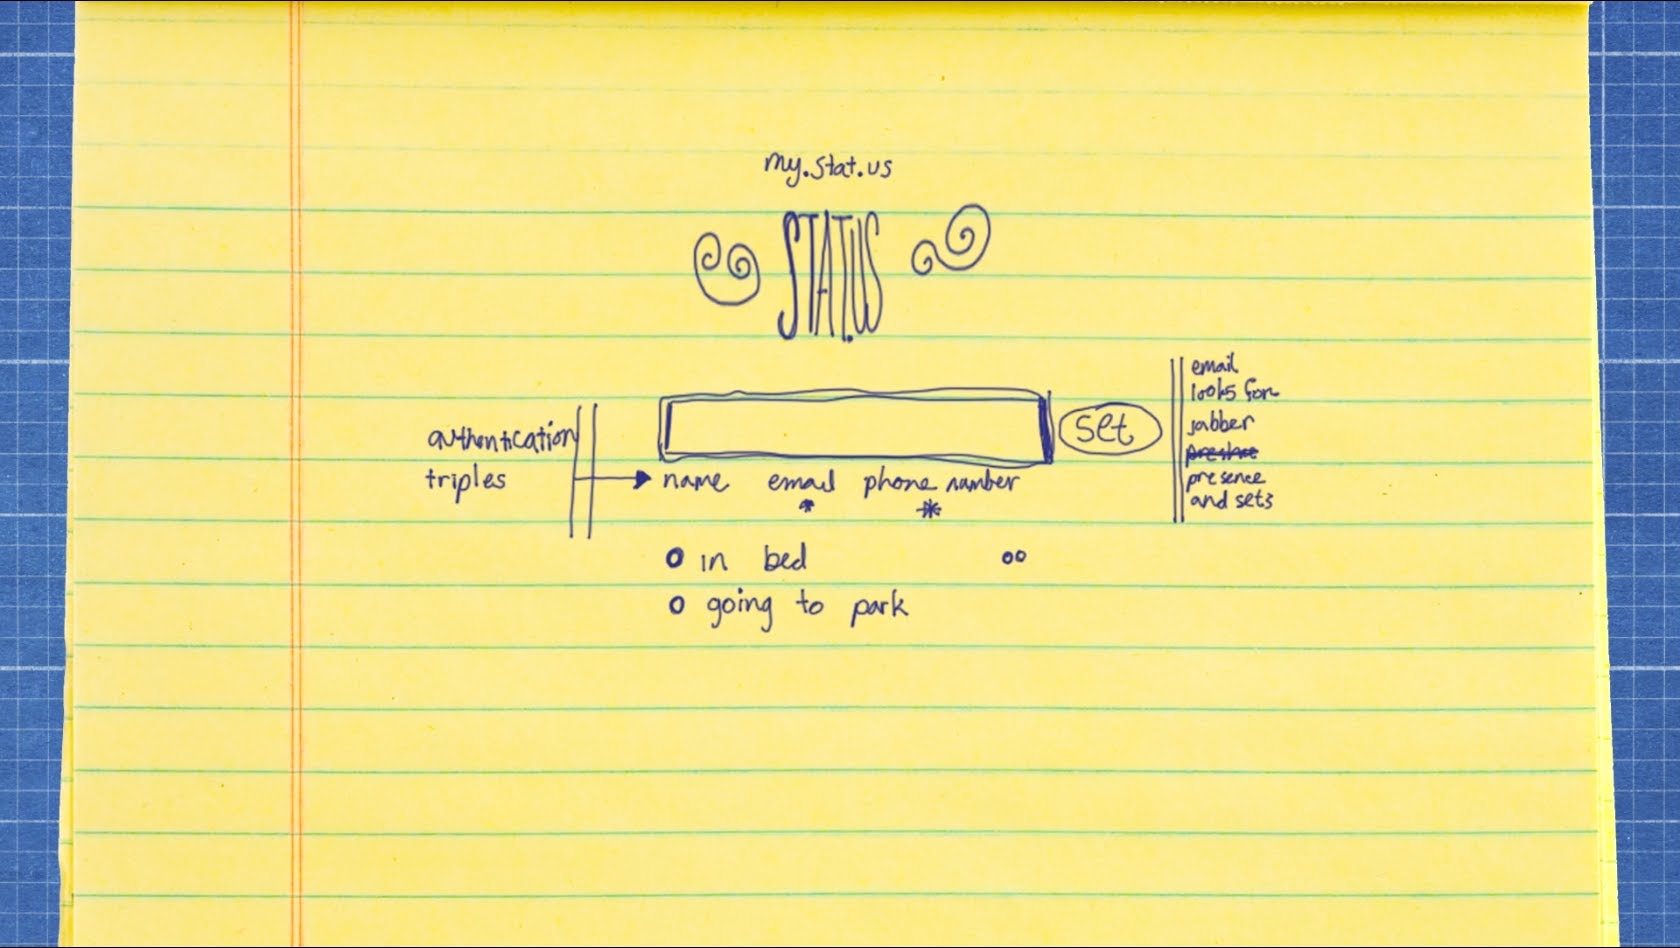 my.stat.us
STAT.US
set
authentication
triples
name email phone number
* *
in bed
going to park
email
looks for
jabber
presence
and sets